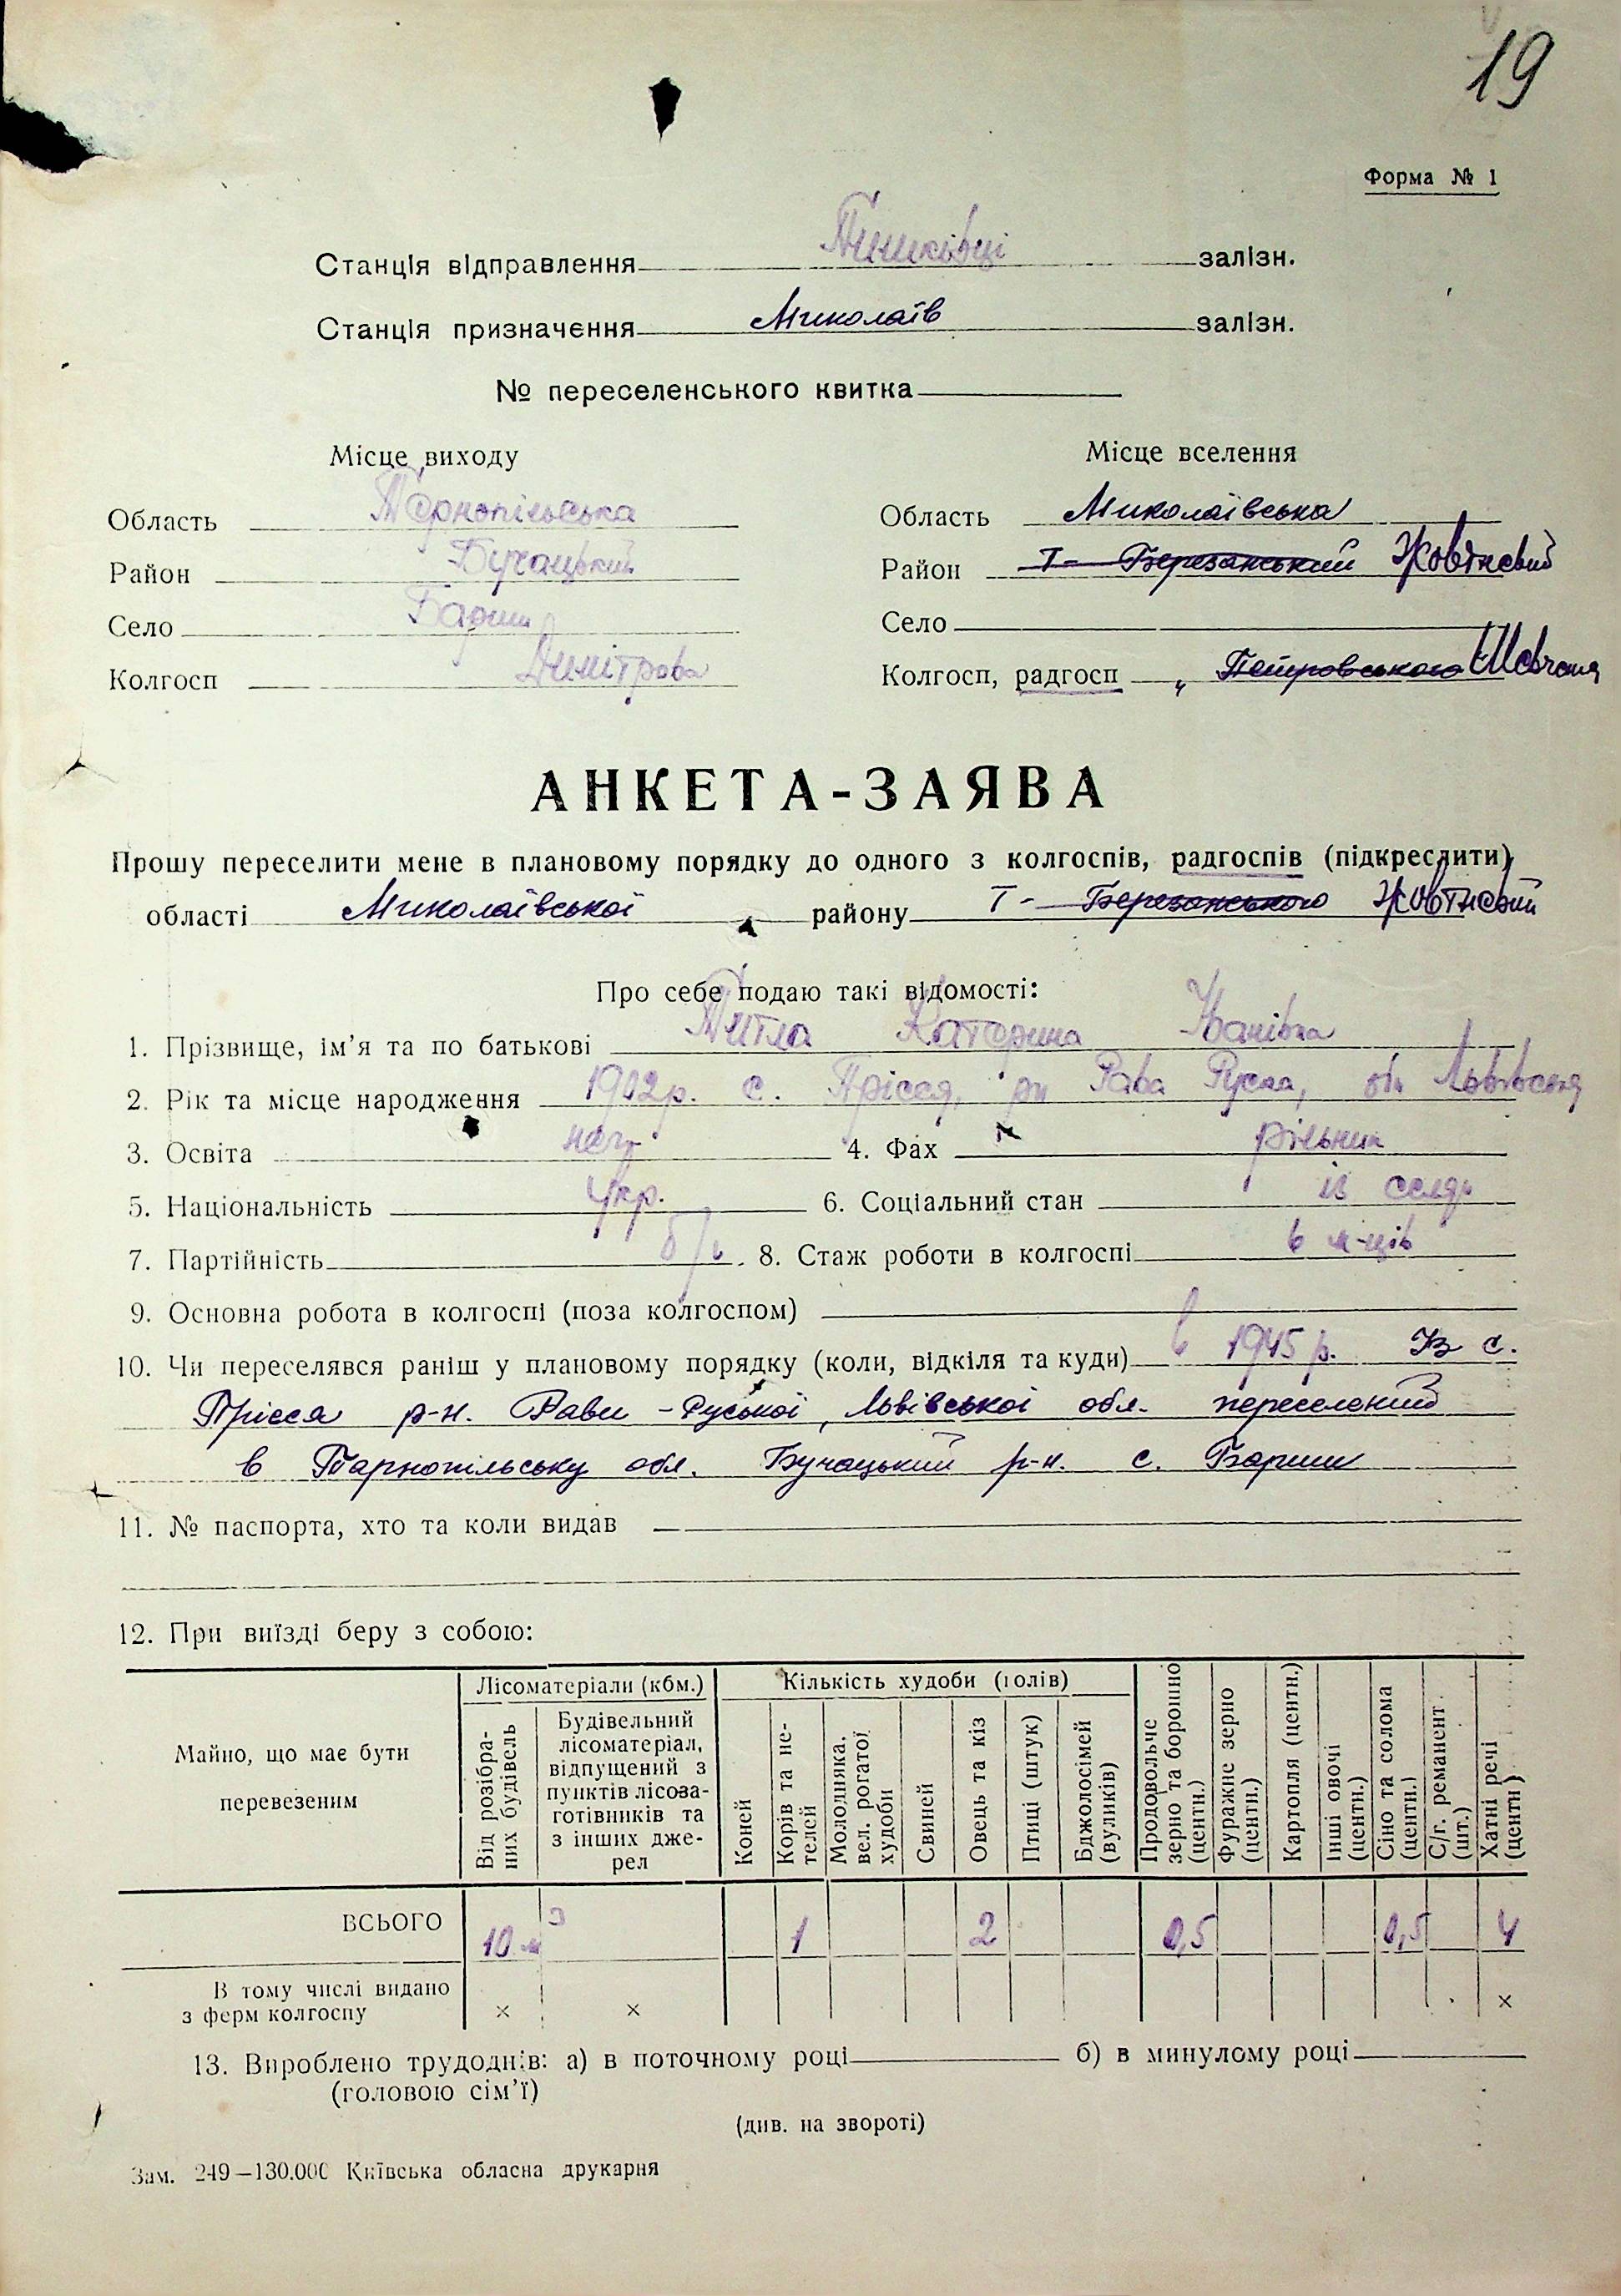 19
Форма № 1
Станція відправлення Пишківці залізн.
Станція призначення Миколаїв залізн.
№ переселенського квитка
Місце виходу
Місце вселення
Область Тернопільська
Область Миколаївська
Район Бучацький
Район Т- Березанський Жовтневий
Село Бариш
Село
Колгосп Димітрова
Колгосп, радгосп „ Петровського Шевченка
АНКЕТА-ЗАЯВА
Прошу переселити мене в плановому порядку до одного з колгоспів, радгоспів (підкреслити)
області Миколаївської району Т- Березанського Жовтневий
Про себе подаю такі відомості:
1. Прізвище, ім'я та по батькові Катерина Іванівна
2. Рік та місце народження 1902р. с. Прісся, рн Рава Руска, обл Львовська
3. Освіта 4. Фах рільник
5. Національність укр. 6. Соціальний стан із селян
7. Партійність б/п. 8. Стаж роботи в колгоспі 6 м-ців
9. Основна робота в колгоспі (поза колгоспом)
10. Чи переселявся раніш у плановому порядку (коли, відкіля та куди) в 1945 р. Із с.
Прісся р-н. Рави-Руської, Львівської обл. переселений
в Тарнопільську обл. Бучацький р-н. с. Бариш
11. № паспорта, хто та коли видав
12. При виїзді беру з собою:
Майно, що має бути перевезеним
Лісоматеріали (кбм.)
Від розібраних будівель
Будівельний лісоматеріал, відпущений з пунктів лісозаготівників та з інших джерел
Кількість худоби (голів)
Коней
Корів та нетелей
Молодняка, вел. рогатої худоби
Свиней
Овець та кіз
Птиці (штук)
Бджолосімей (вуликів)
Продовольче зерно та борошно (центн.)
Фуражне зерно (центн.)
Картопля (центн.)
Інші овочі (центн.)
Сіно та солома (центн.)
С/г. реманент (шт.)
Хатні речі (центн)
ВСЬОГО 10 м3 1 2 0,5 0,5 4
В тому числі видано з ферм колгоспу × × ×
13. Вироблено трудоднів: а) в поточному році б) в минулому році
(головою сім'ї)
(див. на звороті)
Зам. 249—130.000 Київська обласна друкарня